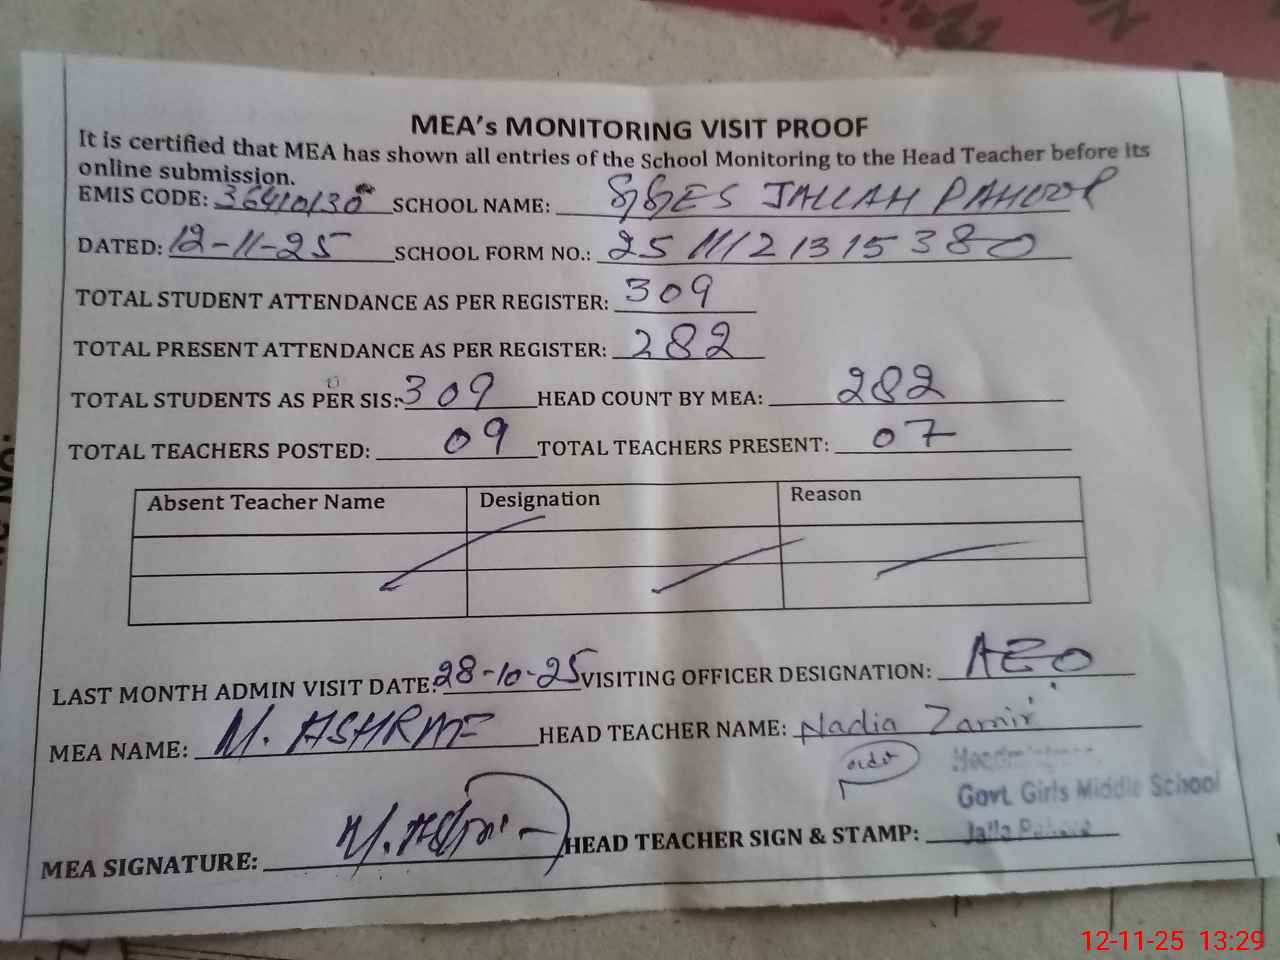 MEA's MONITORING VISIT PROOF
It is certified that MEA has shown all entries of the School Monitoring to the Head Teacher before its
online submission.
EMIS CODE: 36410130 SCHOOL NAME: GGES JALLAH PAHOOR
DATED: 12-11-25 SCHOOL FORM NO.: 2511121315380
TOTAL STUDENT ATTENDANCE AS PER REGISTER: 309
TOTAL PRESENT ATTENDANCE AS PER REGISTER: 282
TOTAL STUDENTS AS PER SIS: 309 HEAD COUNT BY MEA: 282
TOTAL TEACHERS POSTED: 09 TOTAL TEACHERS PRESENT: 07
Absent Teacher Name Designation Reason
LAST MONTH ADMIN VISIT DATE: 28-10-25 VISITING OFFICER DESIGNATION: AEO
MEA NAME: M. ASHRAF HEAD TEACHER NAME: Nadia Zamir
Headmistress
Govt. Girls Middle School
MEA SIGNATURE: M. Ashraf HEAD TEACHER SIGN & STAMP: Jalla
12-11-25 13:29